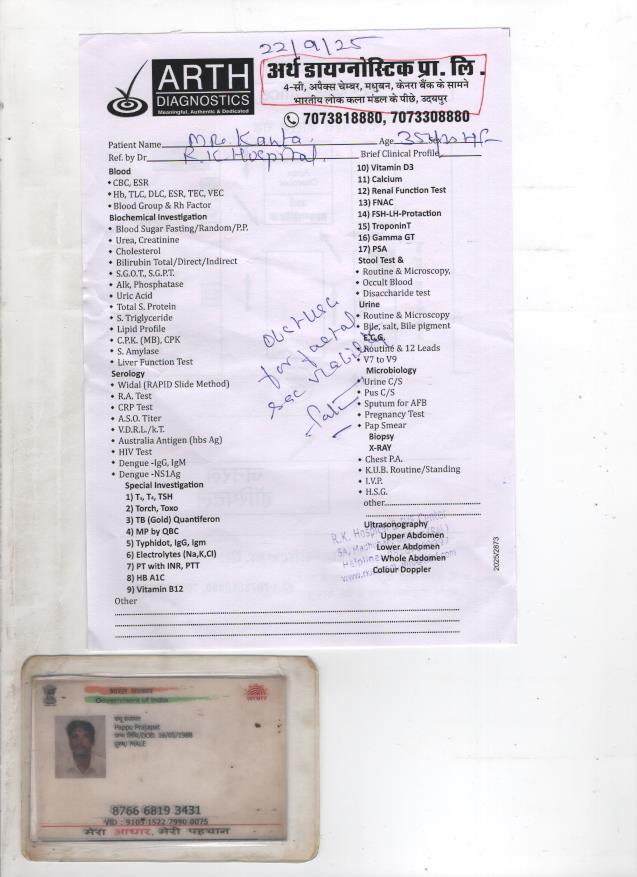 22/9/25
ARTH
DIAGNOSTICS
Meaningful, Authentic & Dedicated
अर्थ डायग्नोस्टिक प्रा. लि.
4-सी, अपैक्स चेम्बर, मधुबन, केनरा बैंक के सामने
भारतीय लोक कला मंडल के पीछे, उदयपुर
7073818880, 7073308880
Patient Name Mrs. Kanta Age 35 yrs
Ref. by Dr R.K. Hospital Brief Clinical Profile
Blood
CBC, ESR
Hb, TLC, DLC, ESR, TEC, VEC
Blood Group & Rh Factor
Biochemical Investigation
Blood Sugar Fasting/Random/P.P.
Urea, Creatinine
Cholesterol
Bilirubin Total/Direct/Indirect
S.G.O.T., S.G.P.T.
Alk, Phosphatase
Uric Acid
Total S. Protein
S. Triglyceride
Lipid Profile
C.P.K. (MB), CPK
S. Amylase
Liver Function Test
Serology
Widal (RAPID Slide Method)
R.A. Test
CRP Test
A.S.O. Titer
V.D.R.L./k.T.
Australia Antigen (hbs Ag)
HIV Test
Dengue -IgG, IgM
Dengue -NS1Ag
Special Investigation
1) T₃, T₄, TSH
2) Torch, Toxo
3) TB (Gold) Quantiferon
4) MP by QBC
5) Typhidot, IgG, Igm
6) Electrolytes (Na,K,Cl)
7) PT with INR, PTT
8) HB A1C
9) Vitamin B12
Other
10) Vitamin D3
11) Calcium
12) Renal Function Test
13) FNAC
14) FSH-LH-Protaction
15) TroponinT
16) Gamma GT
17) PSA
Stool Test &
Routine & Microscopy,
Occult Blood
Disaccharide test
Urine
Routine & Microscopy
Bile, salt, Bile pigment
E.C.G.
Routine & 12 Leads
V7 to V9
Microbiology
Urine C/S
Pus C/S
Sputum for AFB
Pregnancy Test
Pap Smear
Biopsy
X-RAY
Chest P.A.
K.U.B. Routine/Standing
I.V.P.
H.S.G.
other
Ultrasonography
Upper Abdomen
Lower Abdomen
Whole Abdomen
Colour Doppler
for foetal
viability
R.K. Hospital
Helpline
2025/2873
भारत सरकार
Government of India
पप्पू प्रजापत
Pappu Prajapat
जन्म तिथि/DOB: 16/05/1988
पुरुष/ MALE
8766 6819 3431
VID : 9103 1522 7990 0075
मेरा आधार, मेरी पहचान